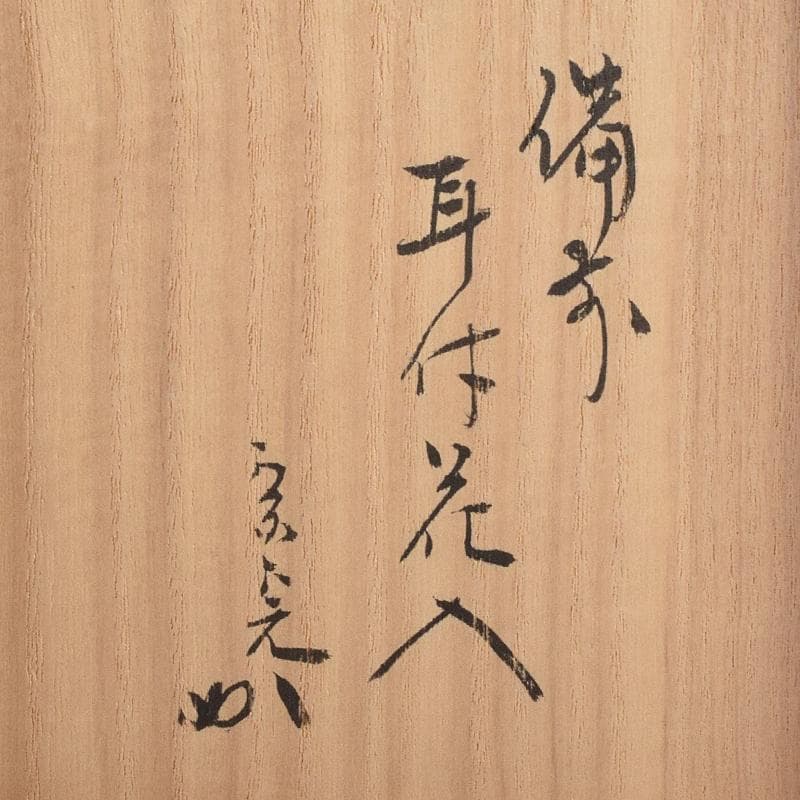 備前
耳付花入